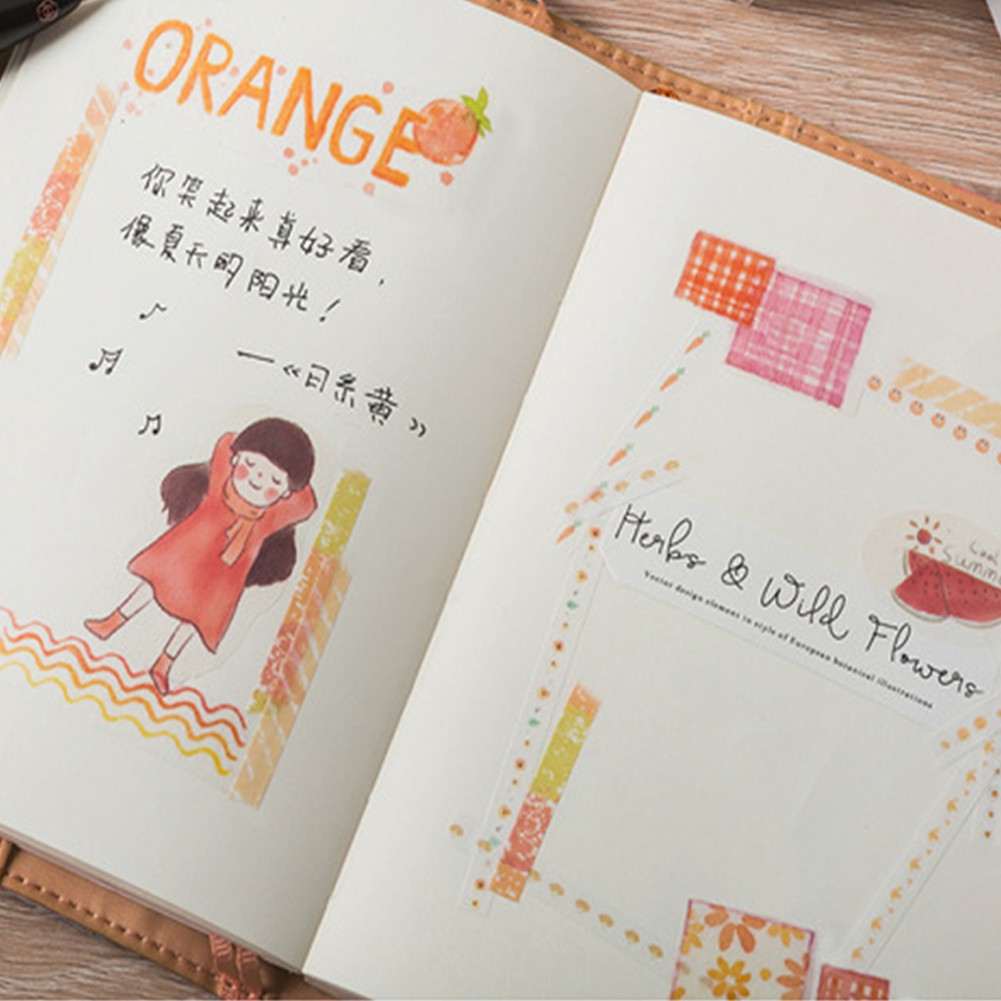 ORANGE
你笑起来真好看,
像夏天的阳光!
—《日系黄》
Herbs & Wild Flowers
Vector design element in style of European botanical illustrations
Summ